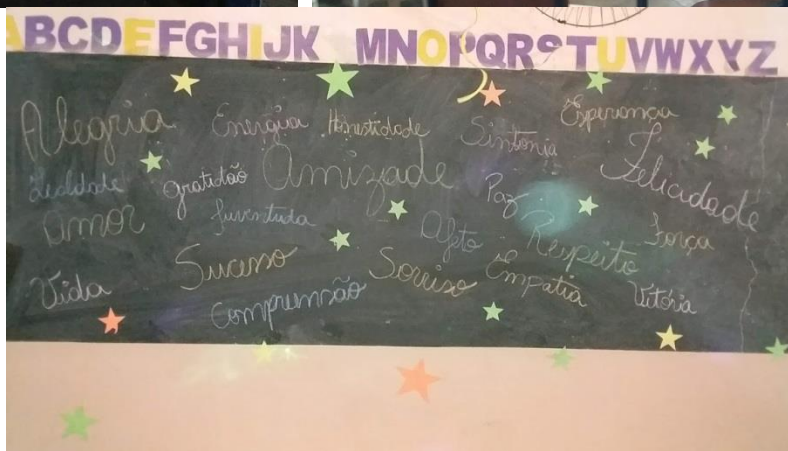 ABCDEFGHIJK MNOPQRSTUVWXYZ
Alegria Energia Honestidade Sintonia Esperança
Lealdade gratidão Amizade Paz Felicidade
Amor Juventude Afeto Respeito Força
Vida Sucesso Sorriso Empatia Vitória
Compreensão